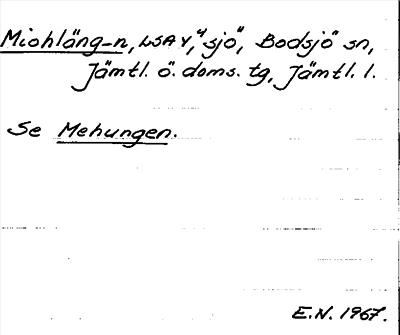 Miohläng-n, LSA V, "sjö", Bodsjö sn,
Jämtl. ö. doms. tg, Jämtl. l.
Se Mehungen.
E.N. 1967.